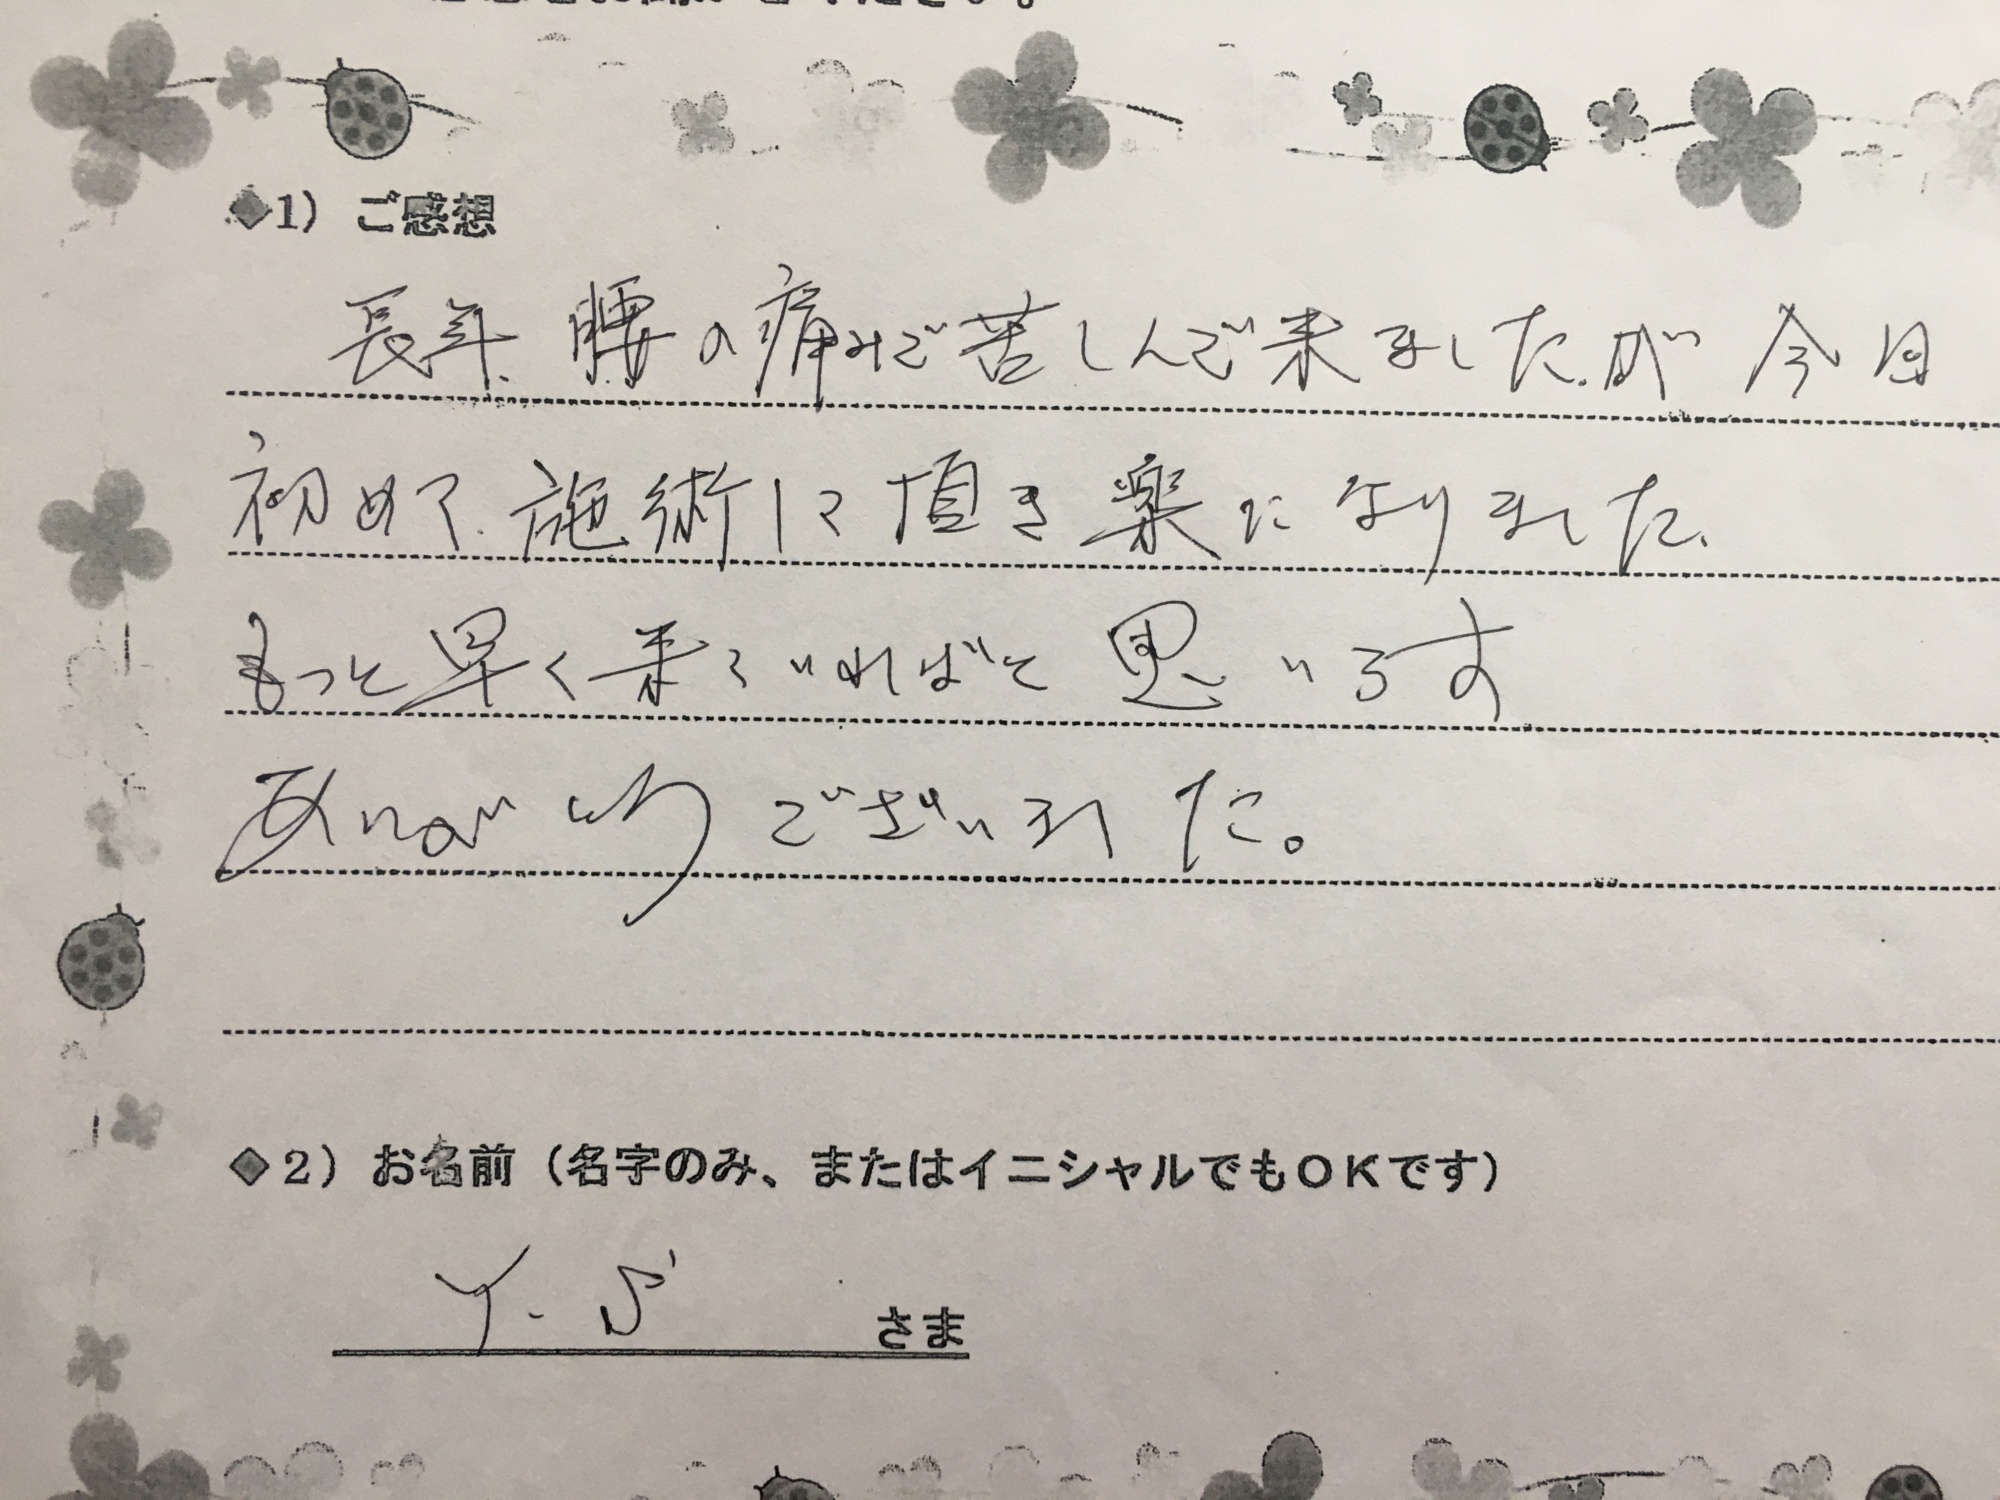 ◆1） ご感想
長年、腰の痛みで苦しんで来ましたが 今日
初めて、施術して頂き楽になりました、
もっと早く来ていればと思います
ありがとうございました。
◆2） お名前（名字のみ、またはイニシャルでもOKです）
Y. S さま